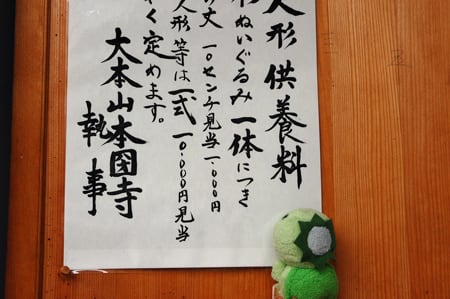 人形供養料
ぬいぐるみ一体につき
丈 一〇センチ見当一、〇〇〇円
人形等は一式一〇、〇〇〇円見当
く定めます。
大本山本圀寺
執事